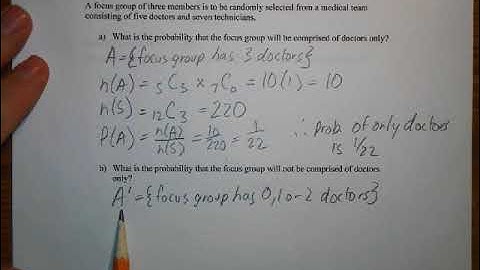 A focus group of three members is to be randomly selected from a medical team
consisting of five doctors and seven technicians.
a) What is the probability that the focus group will be comprised of doctors only?
A = {focus group has 3 doctors}
n(A) = ₅C₃ × ₇C₀ = 10(1) = 10
n(S) = ₁₂C₃ = 220
P(A) = n(A)/n(S) = 10/220 = 1/22 ∴ Prob. of only doctors
is 1/22
b) What is the probability that the focus group will not be comprised of doctors
only?
A' = {focus group has 0, 1 or 2 doctors}